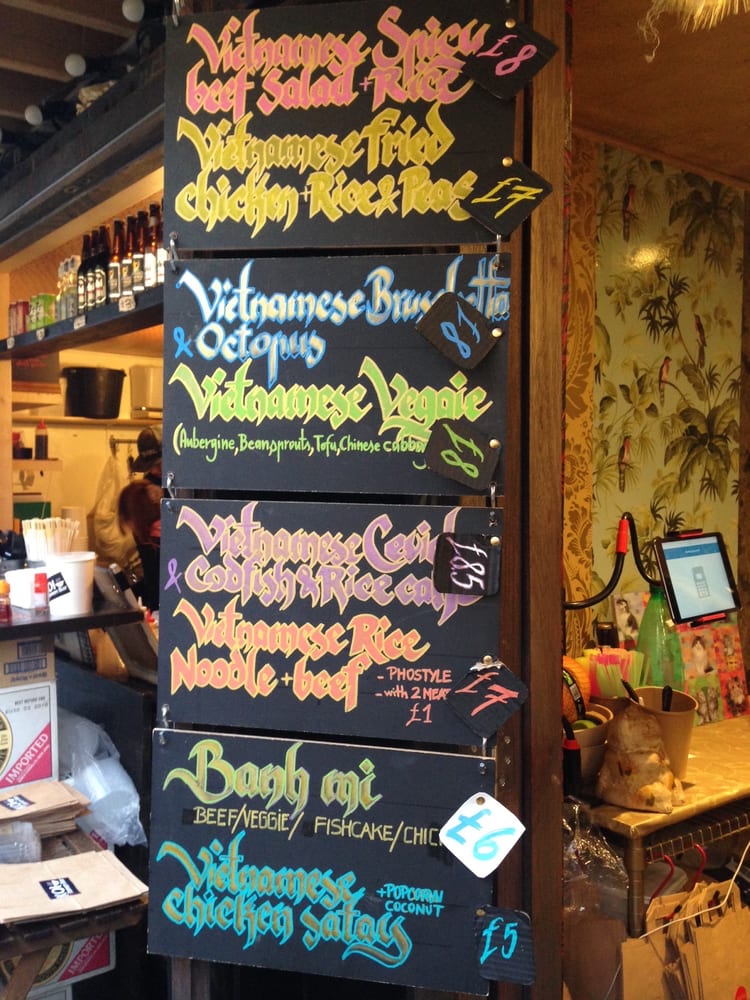 Vietnamese Spicy £8
beef Salad + Rice
Vietnamese fried
chicken + Rice & Peas £7
Vietnamese Bruschetta
& Octopus £8
Vietnamese Veggie
(Aubergine, Beansprouts, Tofu, Chinese cabb £8
Vietnamese Cevich £8.5
& Codfish & Rice cak
Vietnamese Rice
Noodle + beef - PHOSTYLE £7
- with 2 MEAT
£1
Banh mi
BEEF/VEGGIE/ FISHCAKE/CHIC £6
Vietnamese + POPCORN
COCONUT
chicken satay £5
IMPORTED